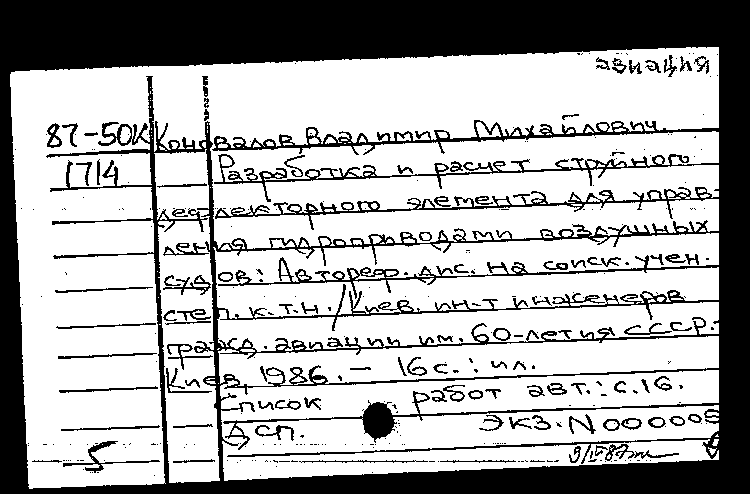 авиация
87-50К Коновалов, Владимир Михайлович.
1714 Разработка и расчет струйного
дефлекторного элемента для управ-
ления гидроприводами воздушных
судов: Автореф. дис. на соиск. учен.
степ. к.т.н. / Киев. ин-т инженеров
гражд. авиации им. 60-летия СССР. -
Киев, 1986. - 16 с. : ил.
Список работ авт.: с. 16.
ДСП. Экз. N 000006
5